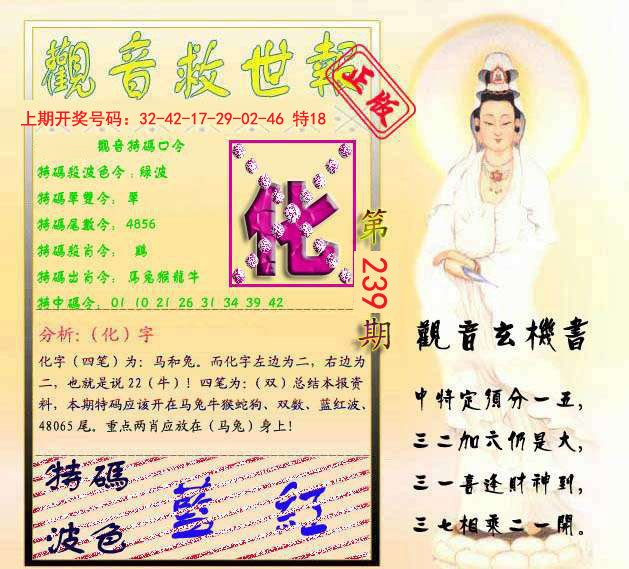 觀音救世報
正版
上期开奖号码：32-42-17-29-02-46 特18
觀音特碼口令
特碼段波色令：綠波
特碼單雙令：單
特碼尾數令：4856
特碼殺肖令：鷄
特碼出肖令：馬兔猴龍牛
特中碼令：01 10 21 26 31 34 39 42
化
第239期
分析：（化）字
化字（四笔）为：马和兔。而化字左边为二，右边为
二，也就是说22（牛）！四笔为：（双）总结本报资
料，本期特码应该开在马兔牛猴蛇狗、双数、蓝红波、
48065尾。重点两肖应放在（马兔）身上！
特碼
波色
藍 紅
觀音玄機書
中特定須分一五，
三二加六仍是大，
三一喜逢財神到，
三七相乘二一開。